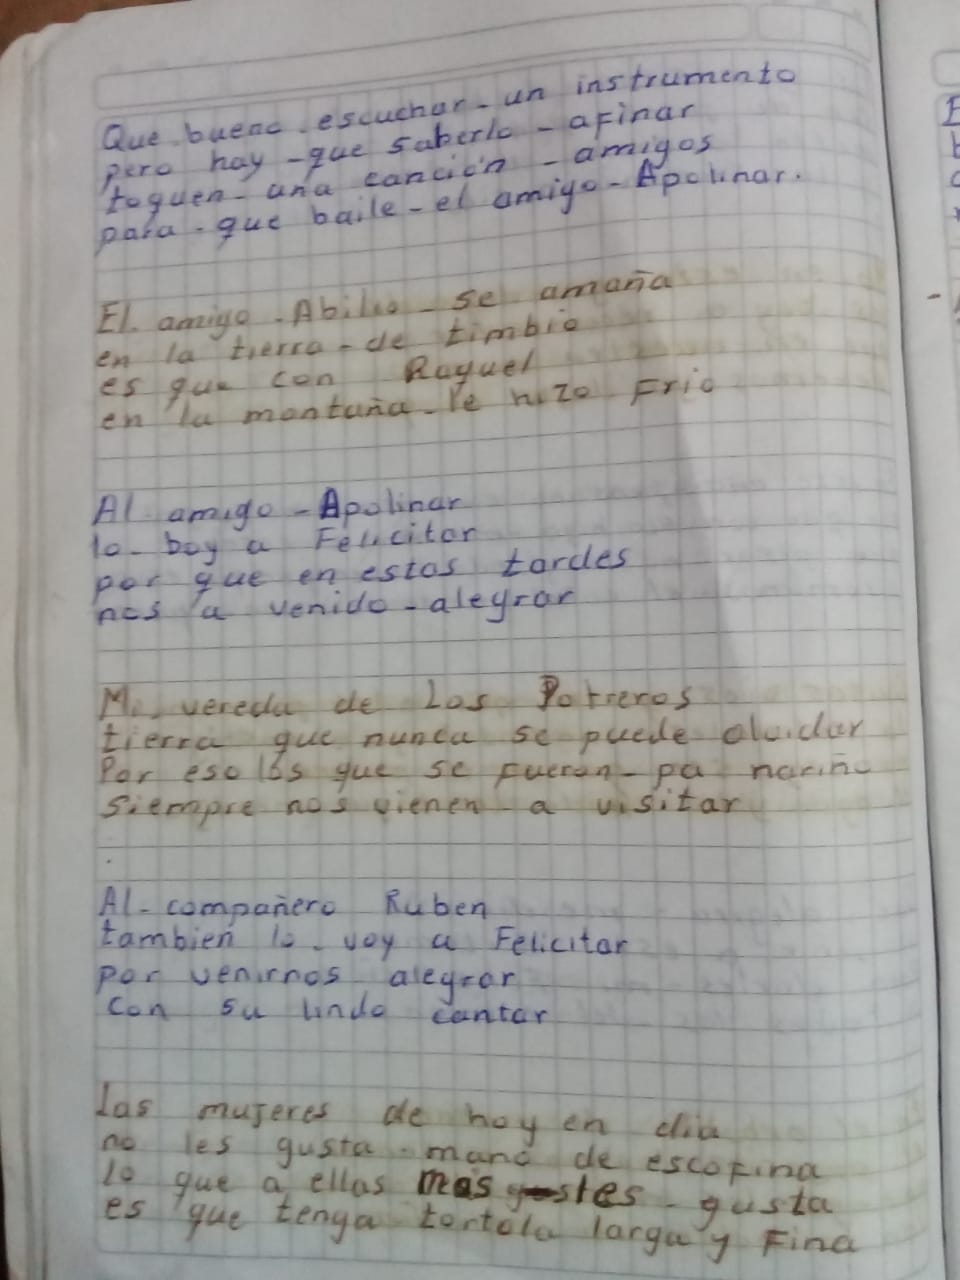 Que bueno escuchar - un instrumento
pero hay - que saberlo - afinar
toquen - una canción - amigos
para - que baile - el amigo - Apolinar.
El amigo - Abilio - se amaña
en la tierra - de timbio
es que con Raquel
en la montaña - le hizo frio
Al amigo - Apolinar
lo boy a Felicitar
por que en estas tardes
nos a venido - alegrar
Mi vereda de Los Potreros
tierra que nunca se puede olvidar
Por eso los que se fueron - pa nariño
siempre nos vienen a visitar
Al - compañero Ruben
tambien lo voy a Felicitar
por venirnos alegrar
con su lindo cantar
las mujeres de hoy en dia
no les gusta mano de escofina
lo que a ellas mas gusta
es que tenga tortola larga y fina